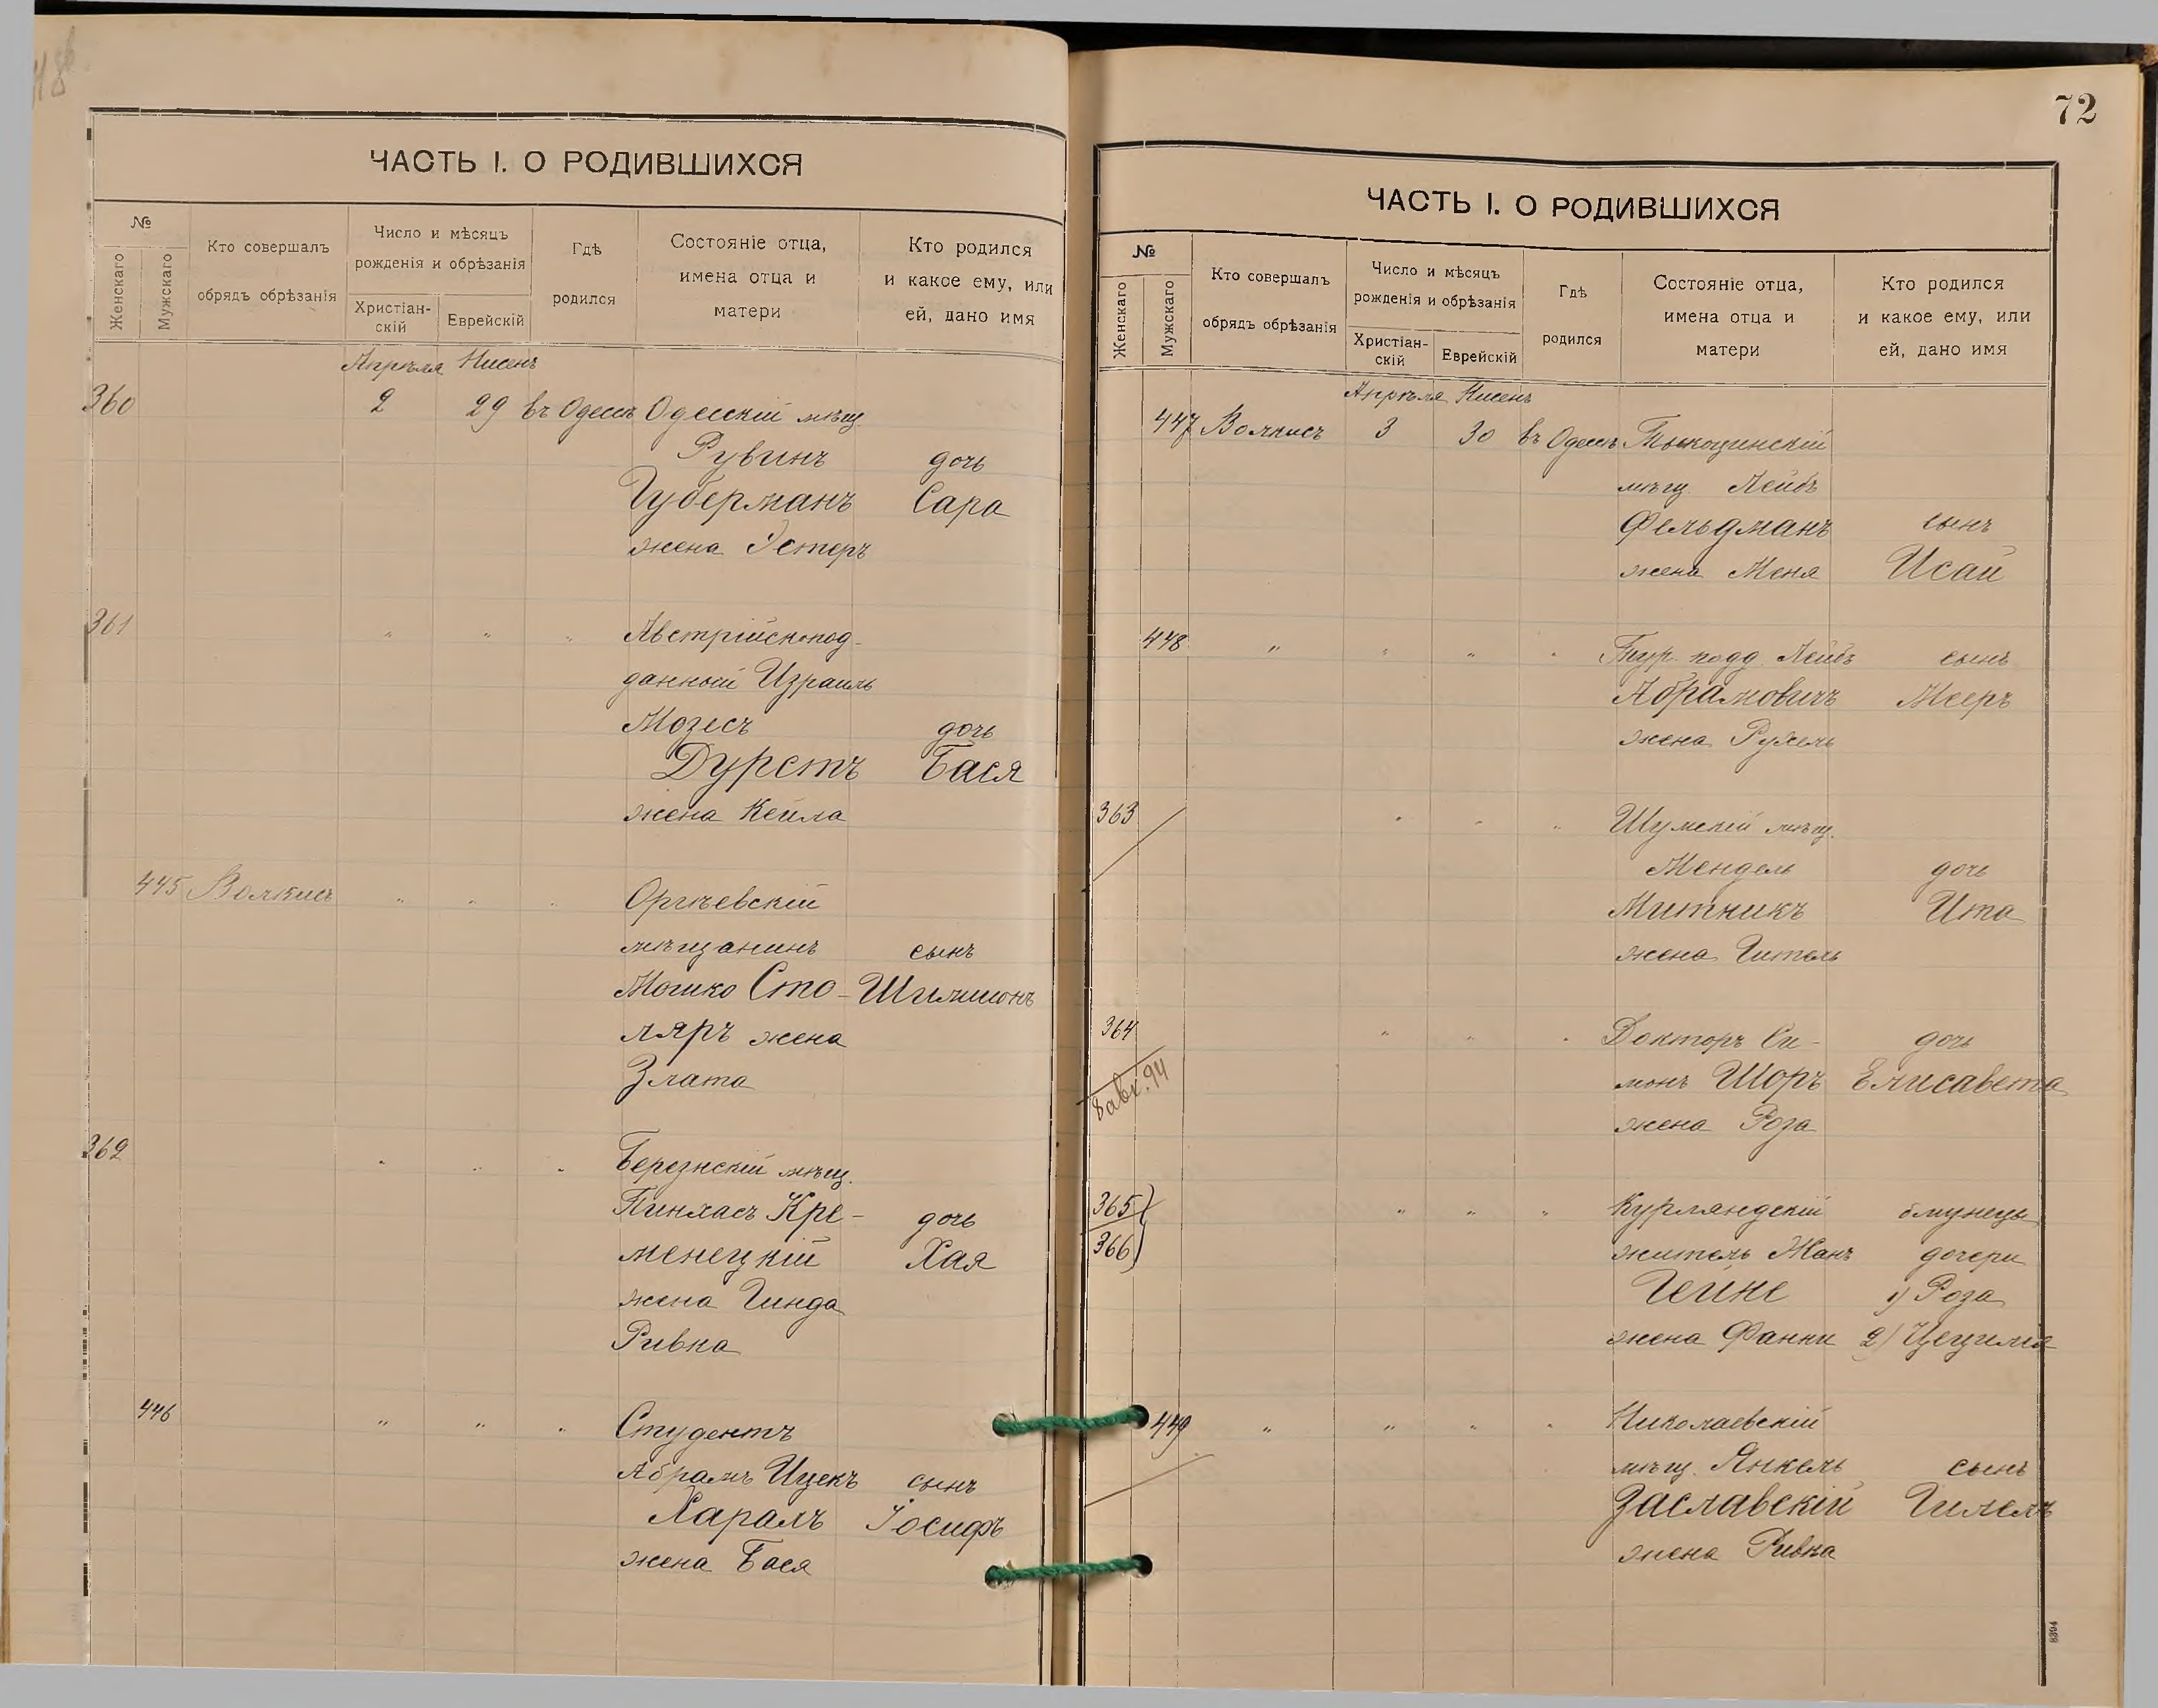 ЧАСТЬ I. О РОДИВШИХСЯ
№
Женскаго
Мужскаго
Кто совершалъ
обрядъ обрѣзанія
Число и мѣсяцъ
рожденія и обрѣзанія
Христіан-
скій
Еврейскій
Гдѣ
родился
Состояніе отца,
имена отца и
матери
Кто родился
и какое ему, или
ей, дано имя
Апрѣля Нисенъ
360 2 29 въ Одессѣ Одесскій мѣщ.
Рувинъ дочь
Губерманъ Сара
жена Эстеръ
361 " " " Австрійскопод-
данный Израиль
Мозесъ дочь
Дурстъ Бася
жена Кейла
445 Волкисъ " " " Оргѣевскій
мѣщанинъ сынъ
Мошко Сто- Шлимонъ
ляръ жена
Злата
362 " " " Березнскій мѣщ.
Пинхасъ Кре- дочь
менецкій Хая
жена Гинда
Ривка
446 " " " Студентъ
Абрамъ Ицекъ сынъ
Іосифъ
жена Бася
72
ЧАСТЬ I. О РОДИВШИХСЯ
№
Женскаго
Мужскаго
Кто совершалъ
обрядъ обрѣзанія
Число и мѣсяцъ
рожденія и обрѣзанія
Христіан-
скій
Еврейскій
Гдѣ
родился
Состояніе отца,
имена отца и
матери
Кто родился
и какое ему, или
ей, дано имя
Апрѣля Нисенъ
447 Волкисъ 3 30 въ Одессѣ Тыкоцинскій
мѣщ. Лейбъ
Фельдманъ сынъ
жена Меня Исай
448 " " " " Тур. подд. Лейбъ сынъ
Абрамовичъ Мееръ
жена Рухель
363 " " " Шумскій мѣщ.
Мендель дочь
Митникъ Ита
жена Гитель
364 " " " Докторъ Си- дочь
монъ Шоръ Елисавета
жена Роза
8 авг. 94
365 " " " Курляндскій близнецы
366 житель Жанъ дочери
Гейне 1) Роза
жена Фанни 2) Цецилія
449 " " " " Николаевскій
мѣщ. Янкель сынъ
Заславскій Гилель
жена Ривка
8394